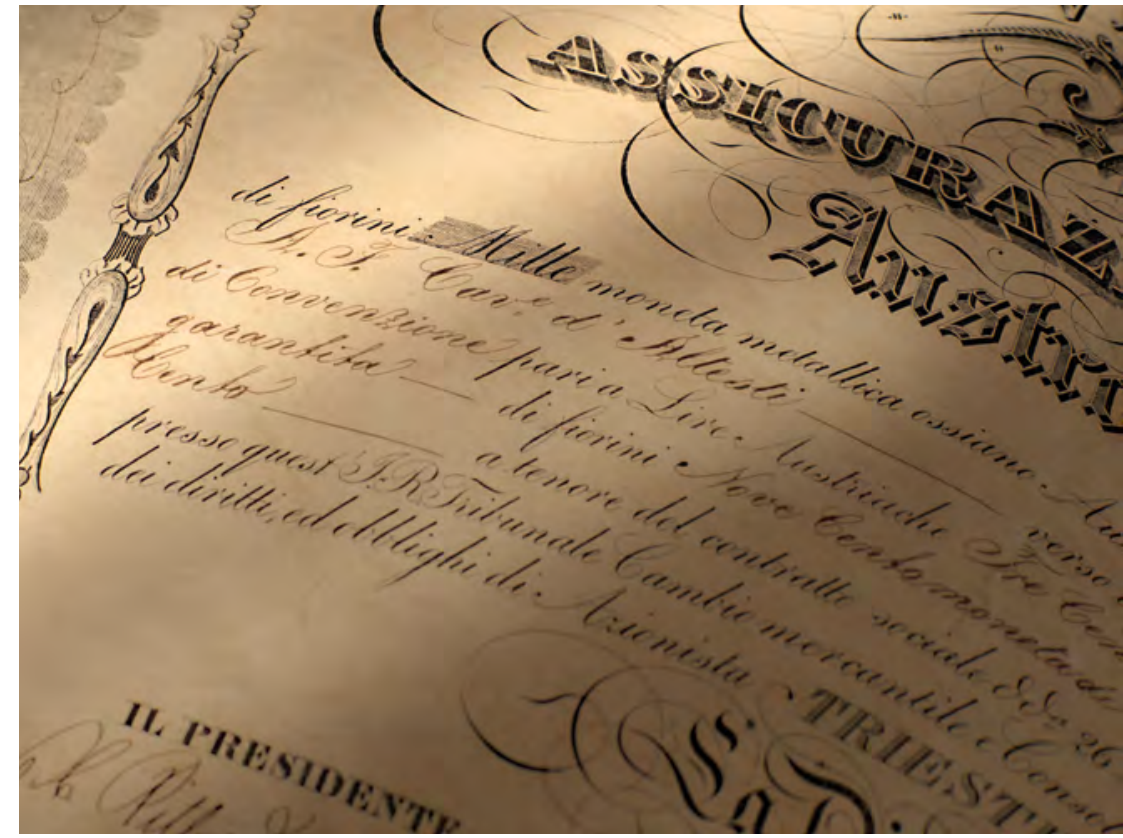 ASSICURAZ
Austr
di fiorini Mille moneta metallica ossiano Au
A. F. Cav.e d'Allesti verso
di Convenzione pari a Lire Austriache Tre Cen
garantita di fiorini Nove Cento moneta di
Cento a tenore del contratto sociale dd.o 26
presso quest' I. R. Tribunale Cambio mercantile e Conso
dei diritti, ed obblighi di Azionista
TRIEST
La D
IL PRESIDENTE